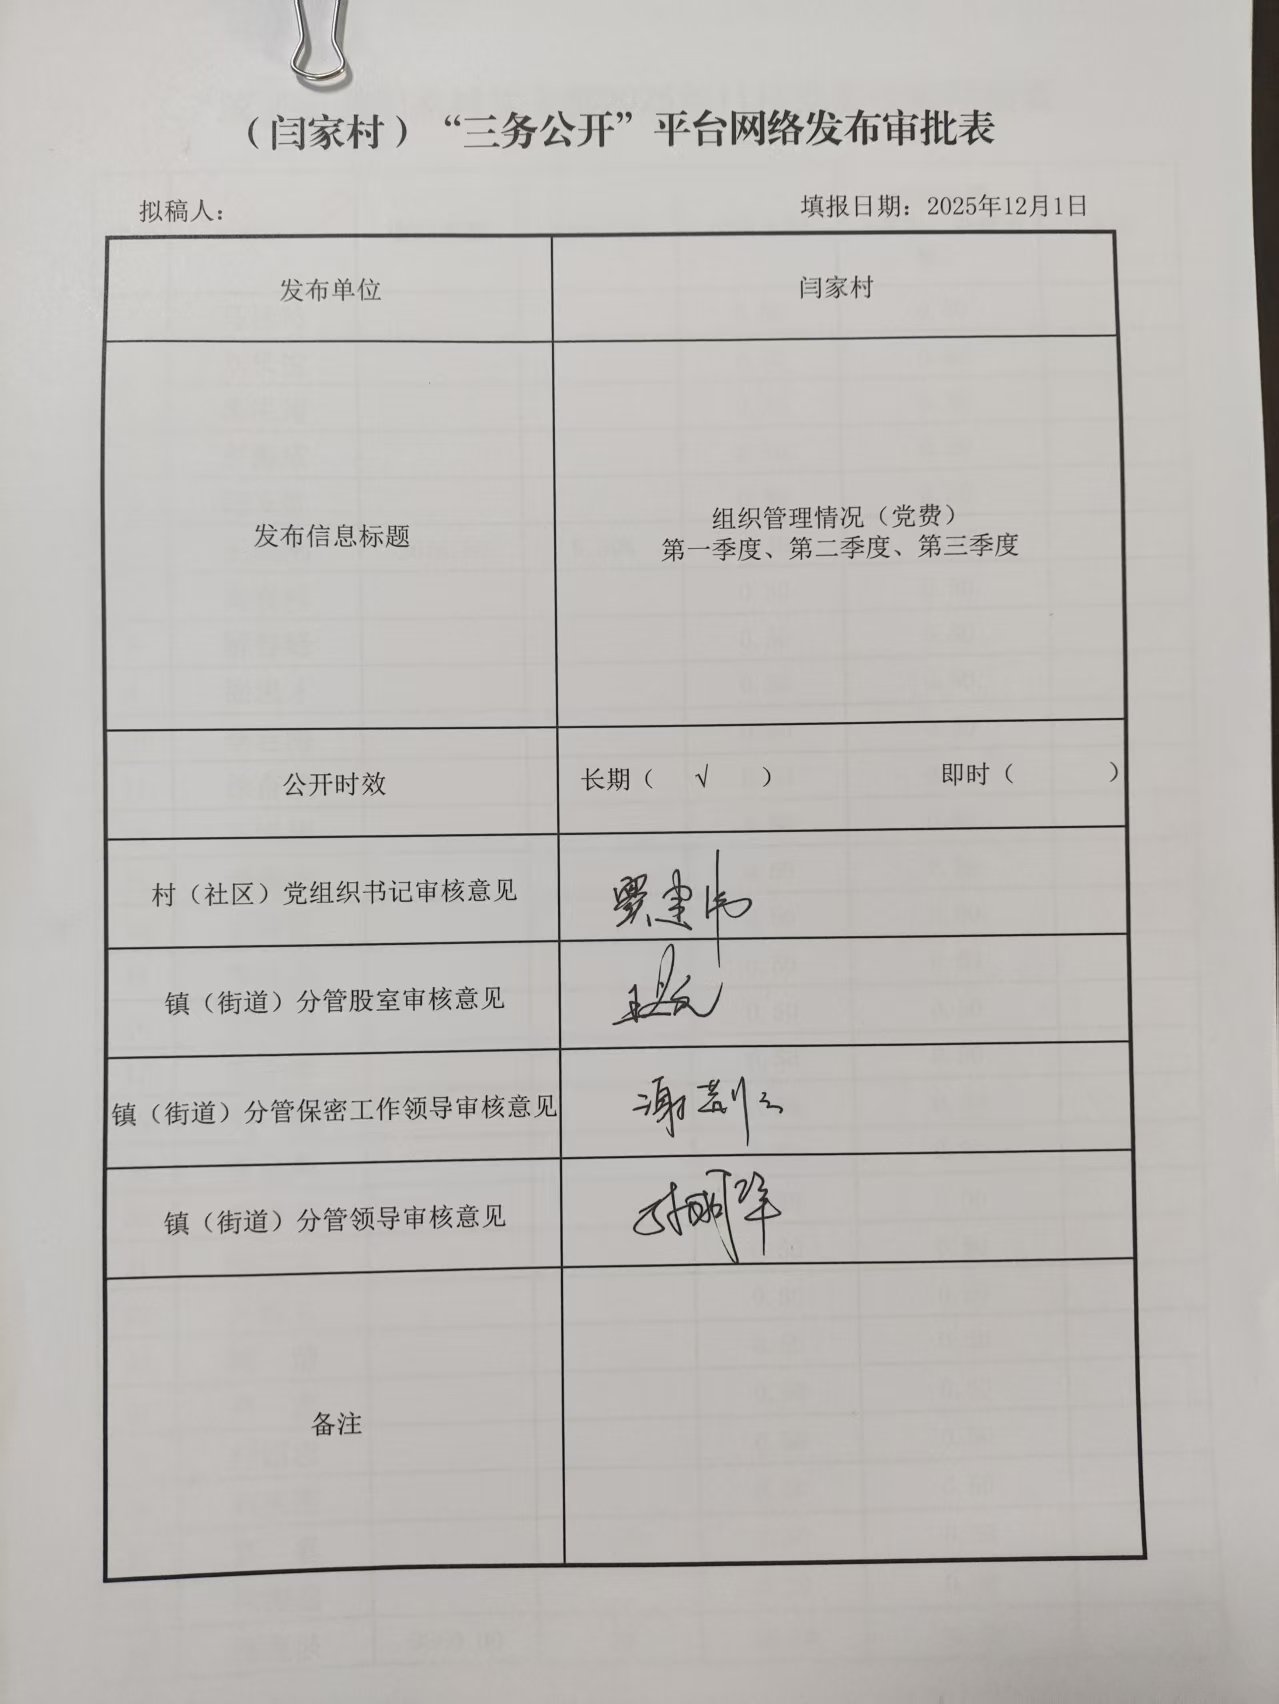 （闫家村）“三务公开”平台网络发布审批表
拟稿人：
填报日期：2025年12月1日
发布单位
闫家村
发布信息标题
组织管理情况（党费）
第一季度、第二季度、第三季度
公开时效
长期（ √ ） 即时（ ）
村（社区）党组织书记审核意见
镇（街道）分管股室审核意见
镇（街道）分管保密工作领导审核意见
镇（街道）分管领导审核意见
备注